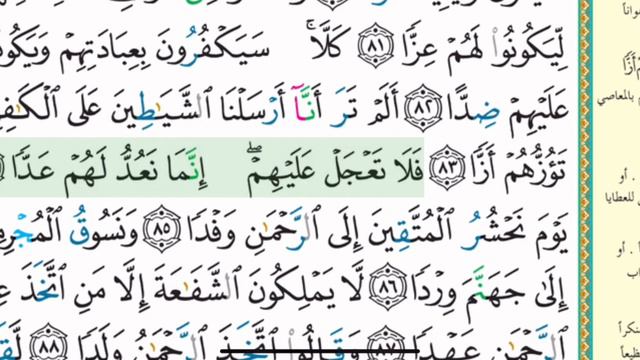 لِّيَكُونُوا۟ لَهُمْ عِزًّا ٨١ كَلَّا ۚ سَيَكْفُرُونَ بِعِبَادَتِهِمْ
عَلَيْهِمْ ضِدًّا ٨٢ أَلَمْ تَرَ أَنَّآ أَرْسَلْنَا ٱلشَّيَـٰطِينَ عَلَى
تَؤُزُّهُمْ أَزًّا ٨٣ فَلَا تَعْجَلْ عَلَيْهِمْ ۖ إِنَّمَا نَعُدُّ لَهُمْ عَدًّا
يَوْمَ نَحْشُرُ ٱلْمُتَّقِينَ إِلَى ٱلرَّحْمَـٰنِ وَفْدًا ٨٥ وَنَسُوقُ
إِلَىٰ جَهَنَّمَ وِرْدًا ٨٦ لَّا يَمْلِكُونَ ٱلشَّفَـٰعَةَ إِلَّا مَنِ ٱتَّخَذَ
ٱلرَّحْمَـٰنِ عَهْدًا ٨٧ وَقَالُوا۟ ٱتَّخَذَ ٱلرَّحْمَـٰنُ وَلَدًا ٨٨
بالمعاصي
أو
للعطايا
أو